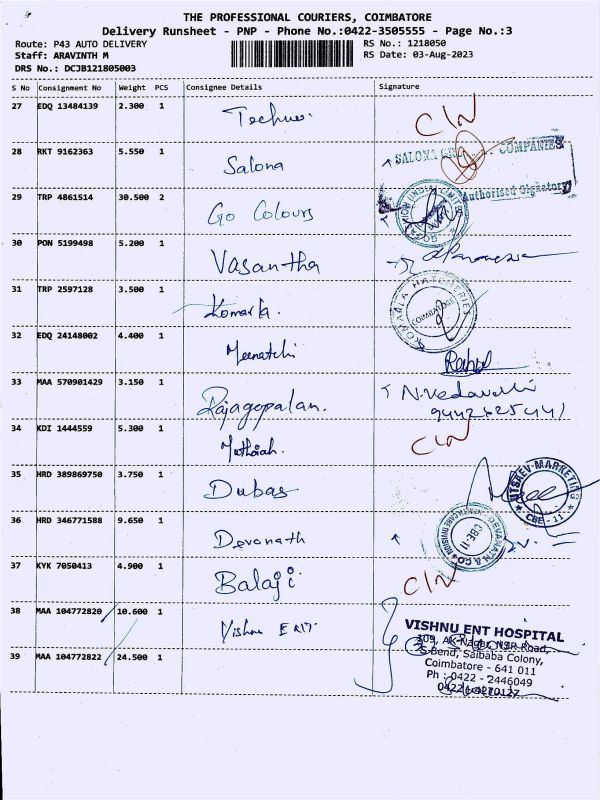 THE PROFESSIONAL COURIERS, COIMBATORE
Delivery Runsheet - PNP - Phone No.:0422-3505555 - Page No.:3
Route: P43 AUTO DELIVERY RS No.: 1218050
Staff: ARAVINTH M RS Date: 03-Aug-2023
DRS No.: DCJB121805003
S No Consignment No Weight PCS Consignee Details Signature
27 EDQ 13484139 2.300 1 C/N
28 RKT 9162363 5.550 1 Salona SALONA COMPANIES
Authorised Signatory
29 TRP 4861514 30.500 2 Go Colours
30 PON 5199498 5.200 1 Vasantha
31 TRP 2597128 3.500 1 Komarla. KOMARLA HATCHERIES COIMBATORE
32 EDQ 24148002 4.400 1 Meenatchi
33 MAA 570901429 3.150 1 Rajagopalan. N. Vedavalli
34 KDI 1444559 5.300 1 Muthiah. C/N
35 HRD 389869750 3.750 1 Dubas UTSAEV MARKETING CBE - 11
36 HRD 346771588 9.650 1 Devanath DEVANATH & CO CBE 11
37 KYK 7050413 4.900 1 Balaji C/N
38 MAA 104772820 10.600 1 Vishnu ENT. VISHNU ENT HOSPITAL
109, AK Nagar, NSR Road,
Bend, Saibaba Colony,
39 MAA 104772822 24.500 1 Coimbatore - 641 011
Ph : 0422 - 2446049